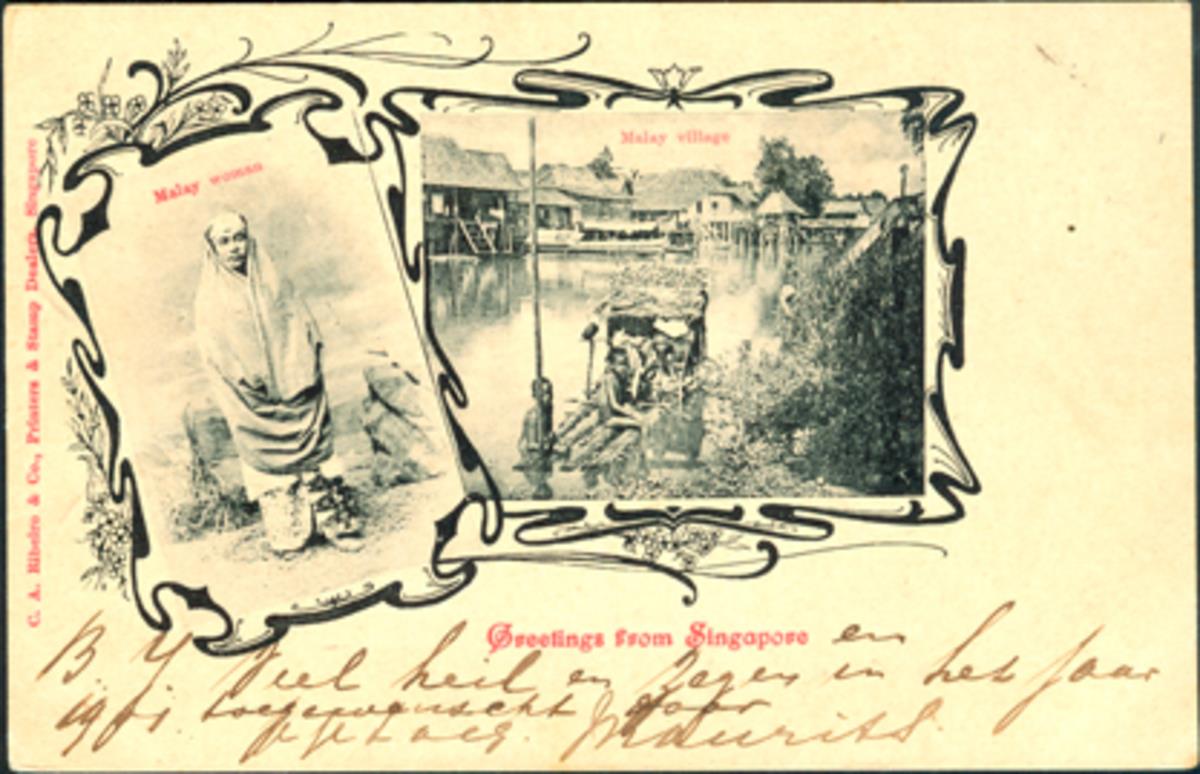 C. A. Ribeiro & Co., Printers & Stamp Dealers Singapore
Malay woman
Malay village
Greetings from Singapore
en
Veel heil en zegen in het jaar
1901 toegewenscht door
Maurits.